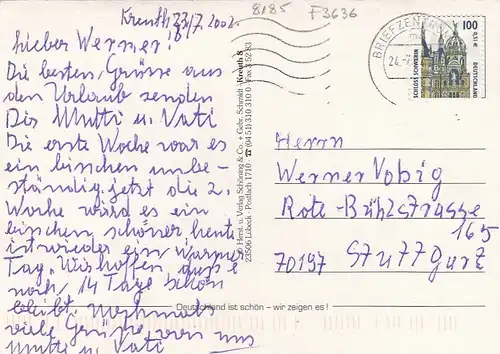 Kreuth 23/7. 2002.
8185 F3636
Lieber Werner!
Die besten Grüsse aus
dem Urlaub senden
Dir Mutti u. Vati
Die erste Woche war es
ein bischen unbe-
ständig, jetzt die 2.
Woche wird es ein
bischen schöner heute
ist wieder ein warmer
Tag. Wir hoffen, dass es
noch 14 Tage schön
bleibt. Nochmals
viele Grüsse von uns
Mutti u. Vati
Herst. u. Verlag Schöning & Co. + Gebr. Schmidt · Kreuth 8
23506 Lübeck · Postfach 1710 ☎ (04 51) 310 310 0 · Fax 5 52 83
Deutschland ist schön – wir zeigen es!
BRIEFZENTRUM
24.-7
100
0,51 €
DEUTSCHLAND
SCHLOSS
Herrn
Werner Vobig
Rote-Bühlstrasse
165
70197 Stuttgart